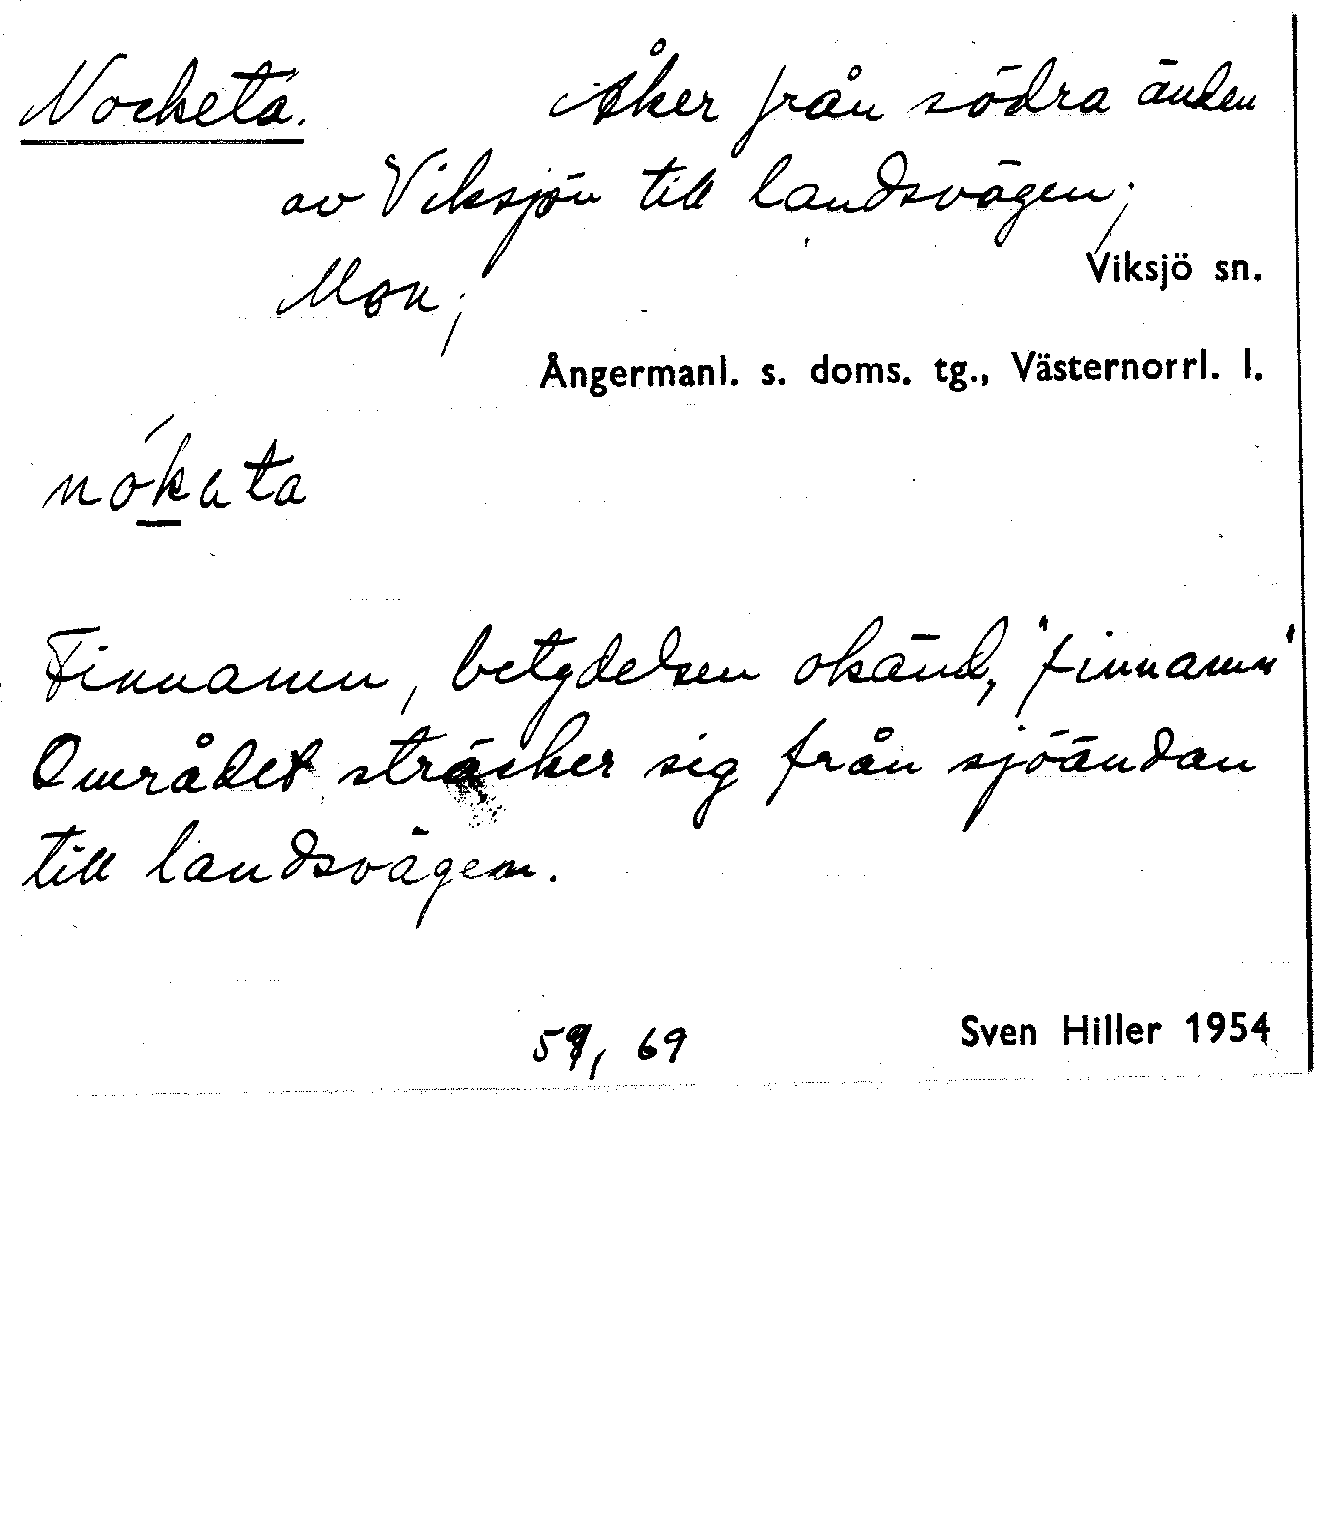 Nocketa. Åker från södra änden
av Viksjön till landsvägen;
Viksjö sn.
Mon;
Ångermanl. s. doms. tg., Västernorrl. l.
nókata
Finnamn, betydelsen okänd, "finnamn"
Området sträcker sig från sjöändan
till landsvägen.
59, 69 Sven Hiller 1954